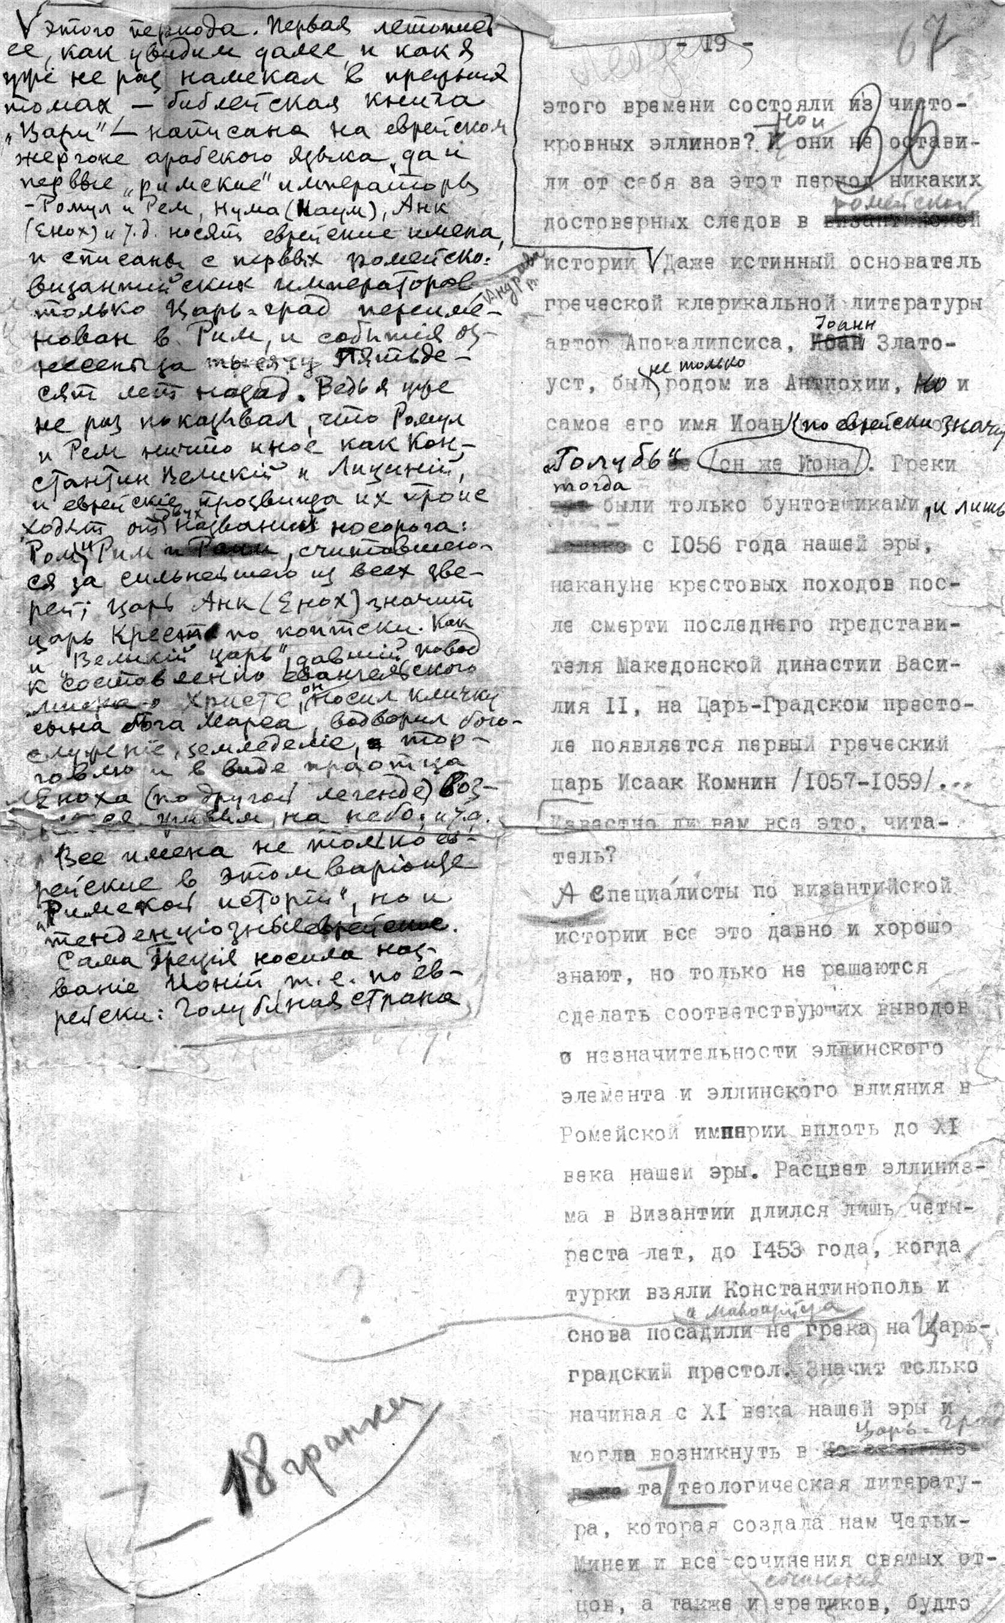 V этого периода. Первая летопись
ее, как увидим далее, и как я
уже не раз намекал в прежних
томах — библейская книга
„Цари“ — написана на еврейском
жаргоне арабского языка, да и
первые „римские“ императоры
- Ромул и Рем, Нума (Наум), Анк
(Енох) и т.д. носят еврейские имена,
и списаны с первых ромейско-
византийских императоров
только Царь-град переиме-
нован в Рим, и события от-
несены за тысячу Пятьде-
сят лет назад. Ведь я уже
не раз показывал, что Ромул
и Рем ничто иное как Кон-
стантин Великий и Лициний,
и еврейские прозвища их проис
ходят от двух названий носорога:
Ром и Рим, считавшего-
ся за сильнейшего из всех зве-
рей; царь Анк (Енох) значит
царь Крест по коптски. Как
и „Великий царь“, давший повод
к составлению евангельского
о Христе, он носил кличку
сына бога Марса, водворил бого-
служение, земледелие, тор-
говлю и в виде праотца
Еноха (по другой легенде) воз-
живым на небо, и т.д.
Все имена не только ев-
рейские в этом варианте
„Римской истории“, но и
тенденциозные.
Сама Греция носила наз-
вание Ионии, т.е. по ев-
рейски: Голубиная страна
18 гранка
- 19 -
67
36
этого времени состояли из чисто-
кровных эллинов? Но и они не остави-
ли от себя за этот период никаких
достоверных следов в ромейской
истории V Даже истинный основатель
греческой клерикальной литературы
автор Апокалипсиса, Иоанн Злато-
уст, был не только родом из Антиохии, но и
самое его имя Иоан по еврейски значит
„Голубь“ (он же Иона). Греки
тогда были только бунтовщиками, и лишь
с 1056 года нашей эры,
накануне крестовых походов пос-
ле смерти последнего представи-
теля Македонской династии Васи-
лия II, на Царь-Градском престо-
ле появляется первый греческий
царь Исаак Комнин /1057-1059/...
Известно ли вам все это, чита-
тель?
А специалисты по византийской
истории все это давно и хорошо
знают, но только не решаются
сделать соответствующих выводов
о незначительности эллинского
элемента и эллинского влияния в
Ромейской империи вплоть до XI
века нашей эры. Расцвет эллиниз-
ма в Византии длился лишь четы-
реста лет, до 1453 года, когда
турки взяли Константинополь и
снова посадили не грека на Царь-
градский престол. Значит только
начиная с XI века нашей эры и
могла возникнуть в Царь-граде
та теологическая литерату-
ра, которая создала нам Четьи-
Минеи и все сочинения святых от-
цов, а также и сочинения еретиков, будто